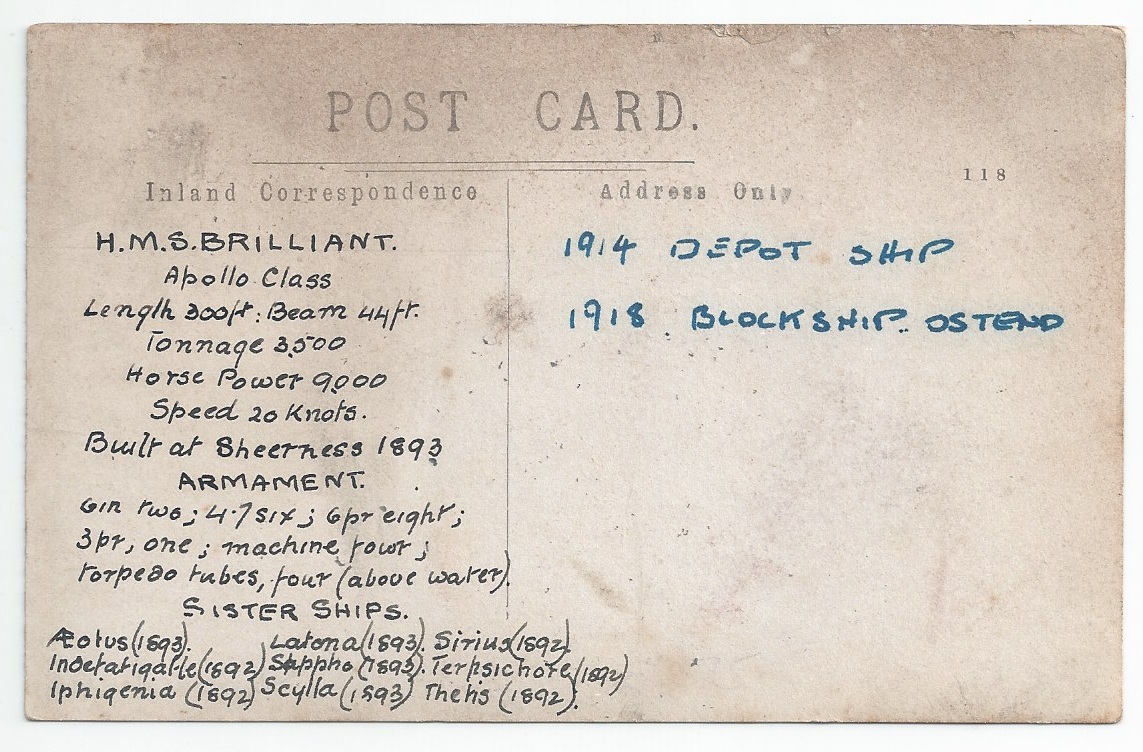 POST CARD.
118
Inland Correspondence
Address Only
H.M.S. BRILLIANT.
Apollo Class
Length 300ft: Beam 44ft.
Tonnage 3,500
Horse Power 9,000
Speed 20 Knots.
Built at Sheerness 1893
ARMAMENT.
6in two; 4.7 six; 6pr eight;
3pr, one; machine, four;
torpedo tubes, four (above water).
SISTER SHIPS.
Æolus (1893). Latona (1893). Sirius (1892).
Indefatigable (1892) Sappho (1893). Terpsichore (1892)
Iphigenia (1892) Scylla (1893) Thetis (1892).
1914 DEPOT SHIP
1918. BLOCKSHIP. OSTEND